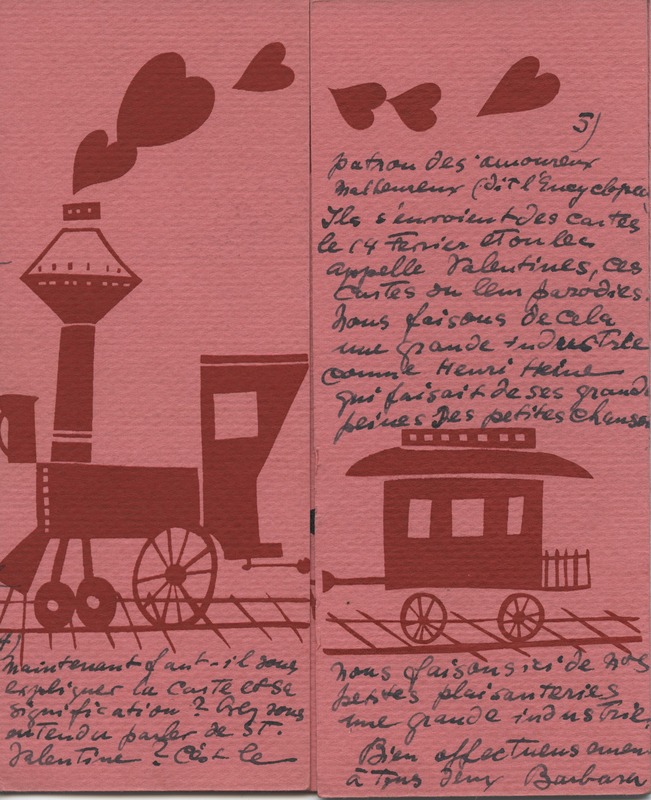 4)
maintenant faut-il vous
expliquer la carte et sa
signification ? Avez vous
entendu parler de ST.
Valentine ? C'est le
5)
patron des amoureux
malheureux (dit l'Encyclope
Ils s'envoient des cartes
le 14 Fevrier et on les
appelle Valentines, ces
cartes ou leur parodies.
Nous faisons de cela
une grande industrie
comme Henri Heine
qui faisait de ses grand
peines des petites chanson
nous faisons ici de nos
petites plaisanteries
une grande industrie.
Bien affectueusemen
à tous deux Barbara